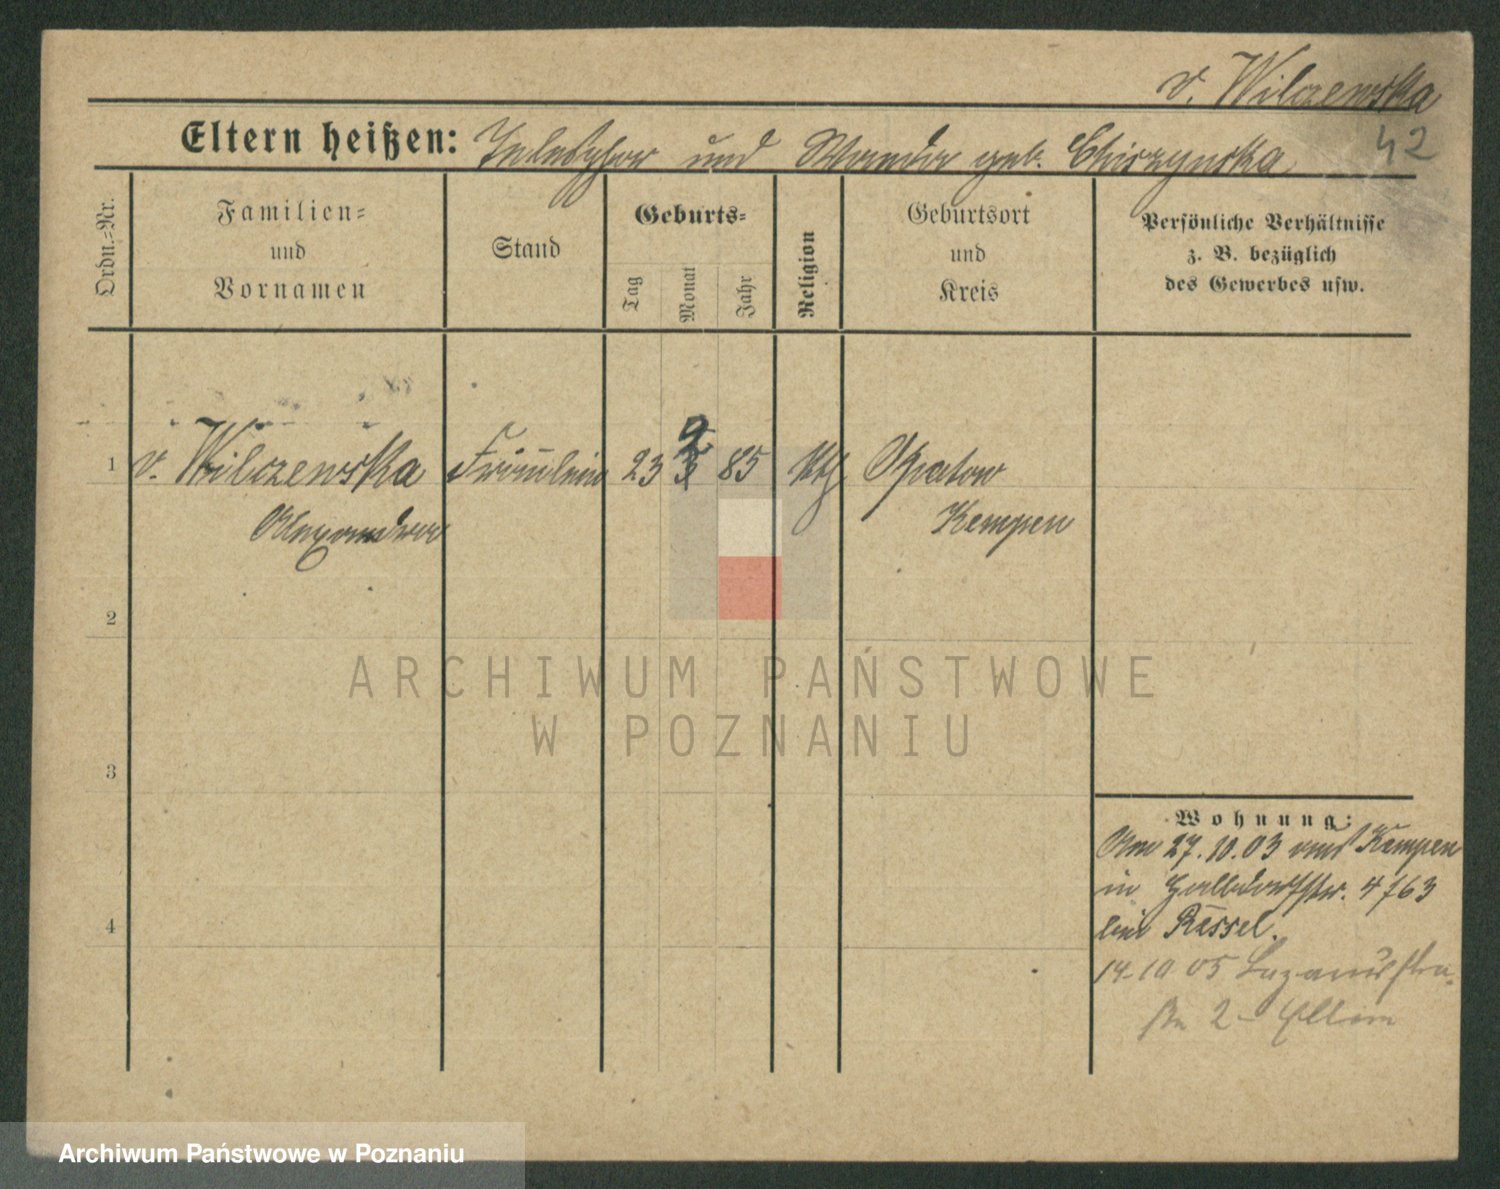 v. Wilczewska
42
Eltern heißen: Telesphor und Wanda geb. Chiczynska
Ordn.=Nr.
Familien=
und
Vornamen
Stand
Geburts=
Tag
Monat
Jahr
Religion
Geburtsort
und
Kreis
Persönliche Verhältnisse
z. B. bezüglich
des Gewerbes usw.
1 v. Wilczewska Fräulein 23 2 85 kth Opatow
Alexandra Kempen
2
3
4
Wohnung:
Am 27.10.03 aus Kempen
in Halbdorfstr. 4
bei Ressel.
14.10 05 Lazarusstra
ße 2 Eltern
ARCHIWUM PAŃSTWOWE
W POZNANIU
Archiwum Państwowe w Poznaniu